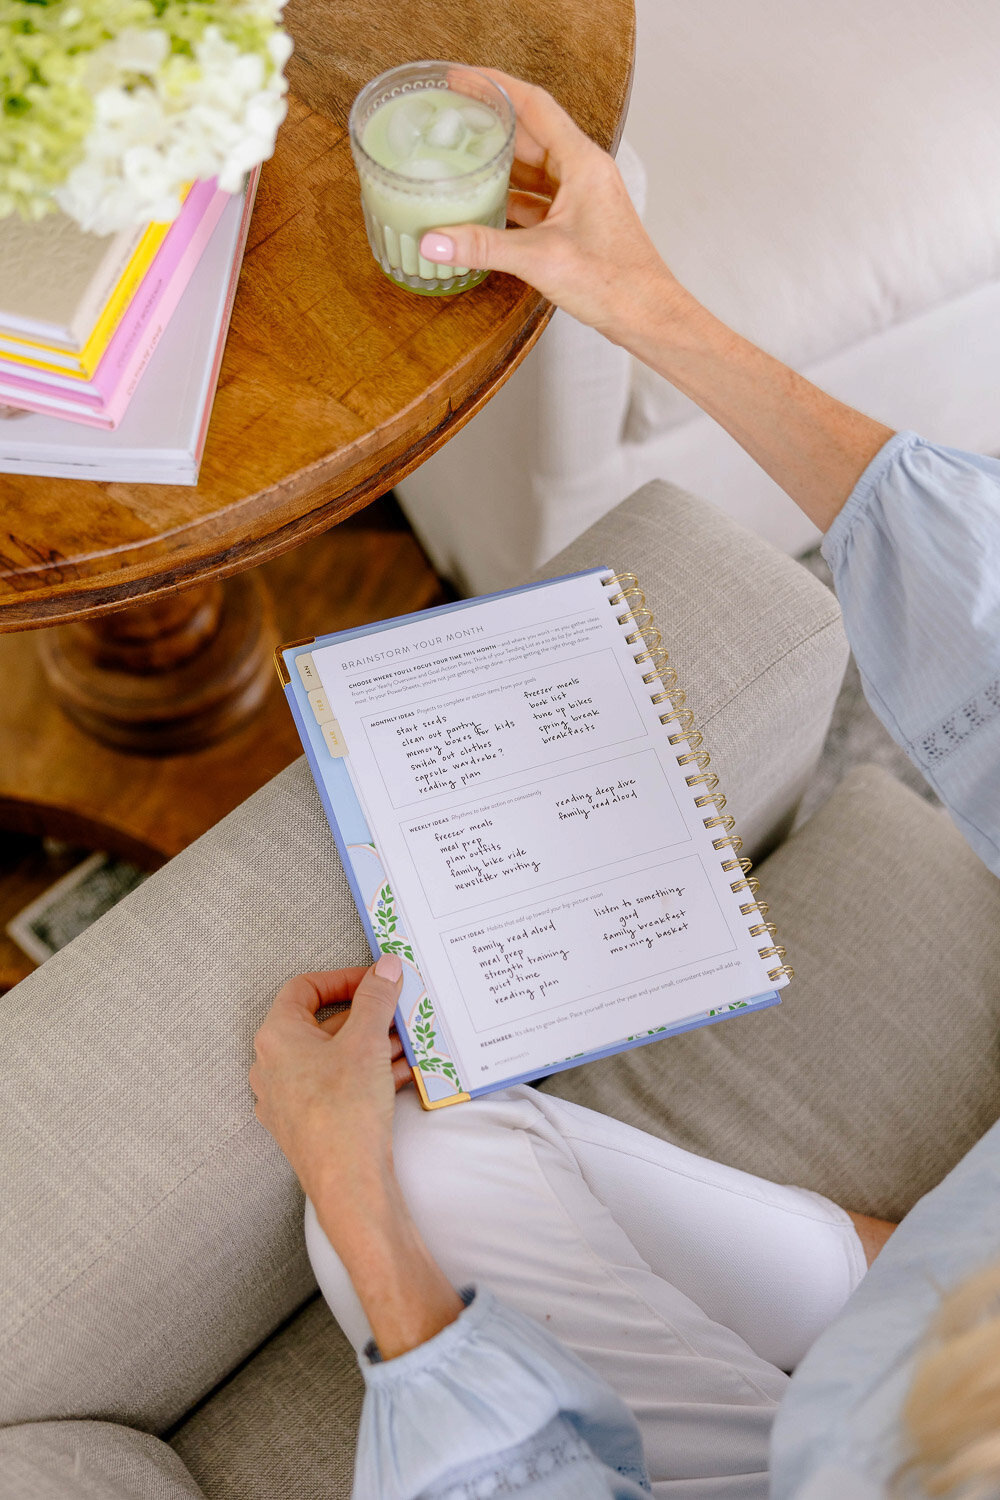 JAN
FEB
MAR
BRAINSTORM YOUR MONTH
CHOOSE WHERE YOU'LL FOCUS YOUR TIME THIS MONTH—and where you won't—as you gather ideas
from your Yearly Overview and Goal Action Plans. Think of your Tending List as a to do list for what matters
most. In your PowerSheets, you're not just getting things done—you're getting the right things done.
MONTHLY IDEAS Projects to complete or action items from your goals
start seeds
clean out pantry
memory boxes for kids
switch out clothes
capsule wardrobe?
reading plan
freezer meals
book list
tune up bikes
spring break
breakfasts
WEEKLY IDEAS Rhythms to take action on consistently
freezer meals
meal prep
plan outfits
family bike ride
newsletter writing
reading deep dive
family read aloud
DAILY IDEAS Habits that add up toward your big-picture vision
family read aloud
meal prep
strength training
quiet time
reading plan
listen to something
good
family breakfast
morning basket
REMEMBER: It's okay to grow slow. Pace yourself over the year and your small, consistent steps will add up.
66 #POWERSHEETS